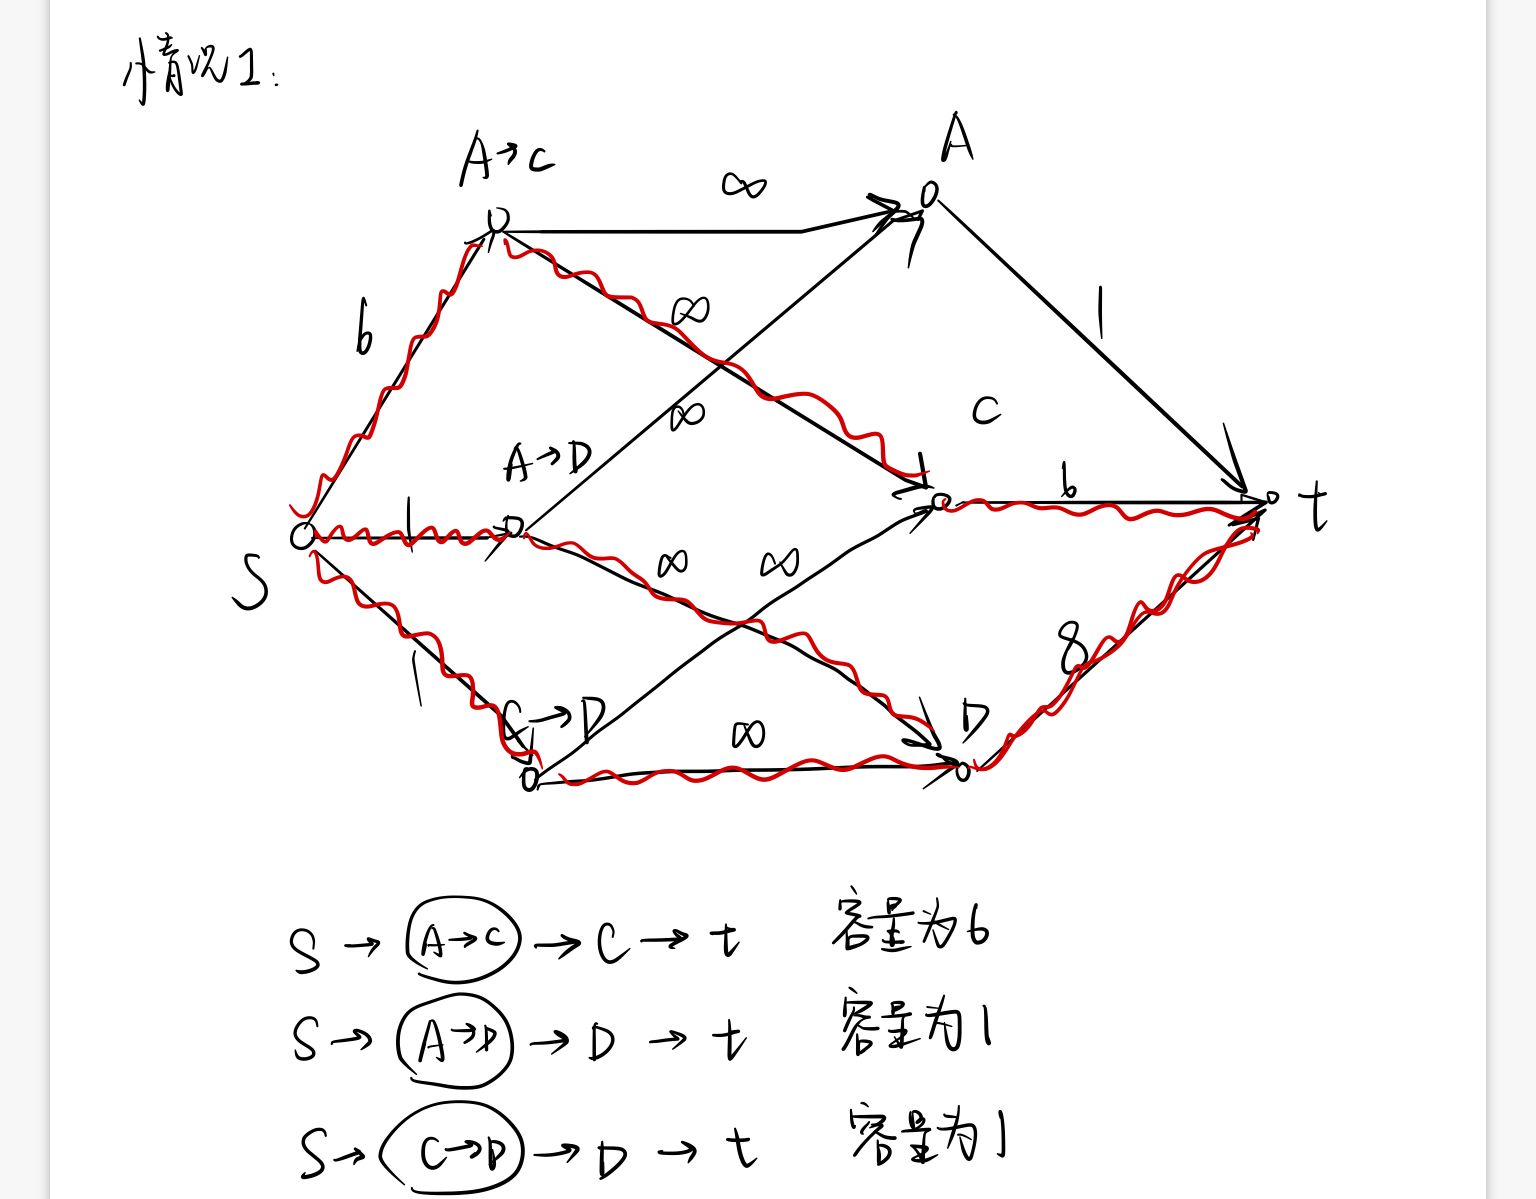 情况1:
A
A→C
∞
6
∞
1
∞
C
A→D
6
1
t
∞
∞
S
8
1
C→D
D
∞
S → A→C → C → t 容量为6
S → A→D → D → t 容量为1
S → C→D → D → t 容量为1